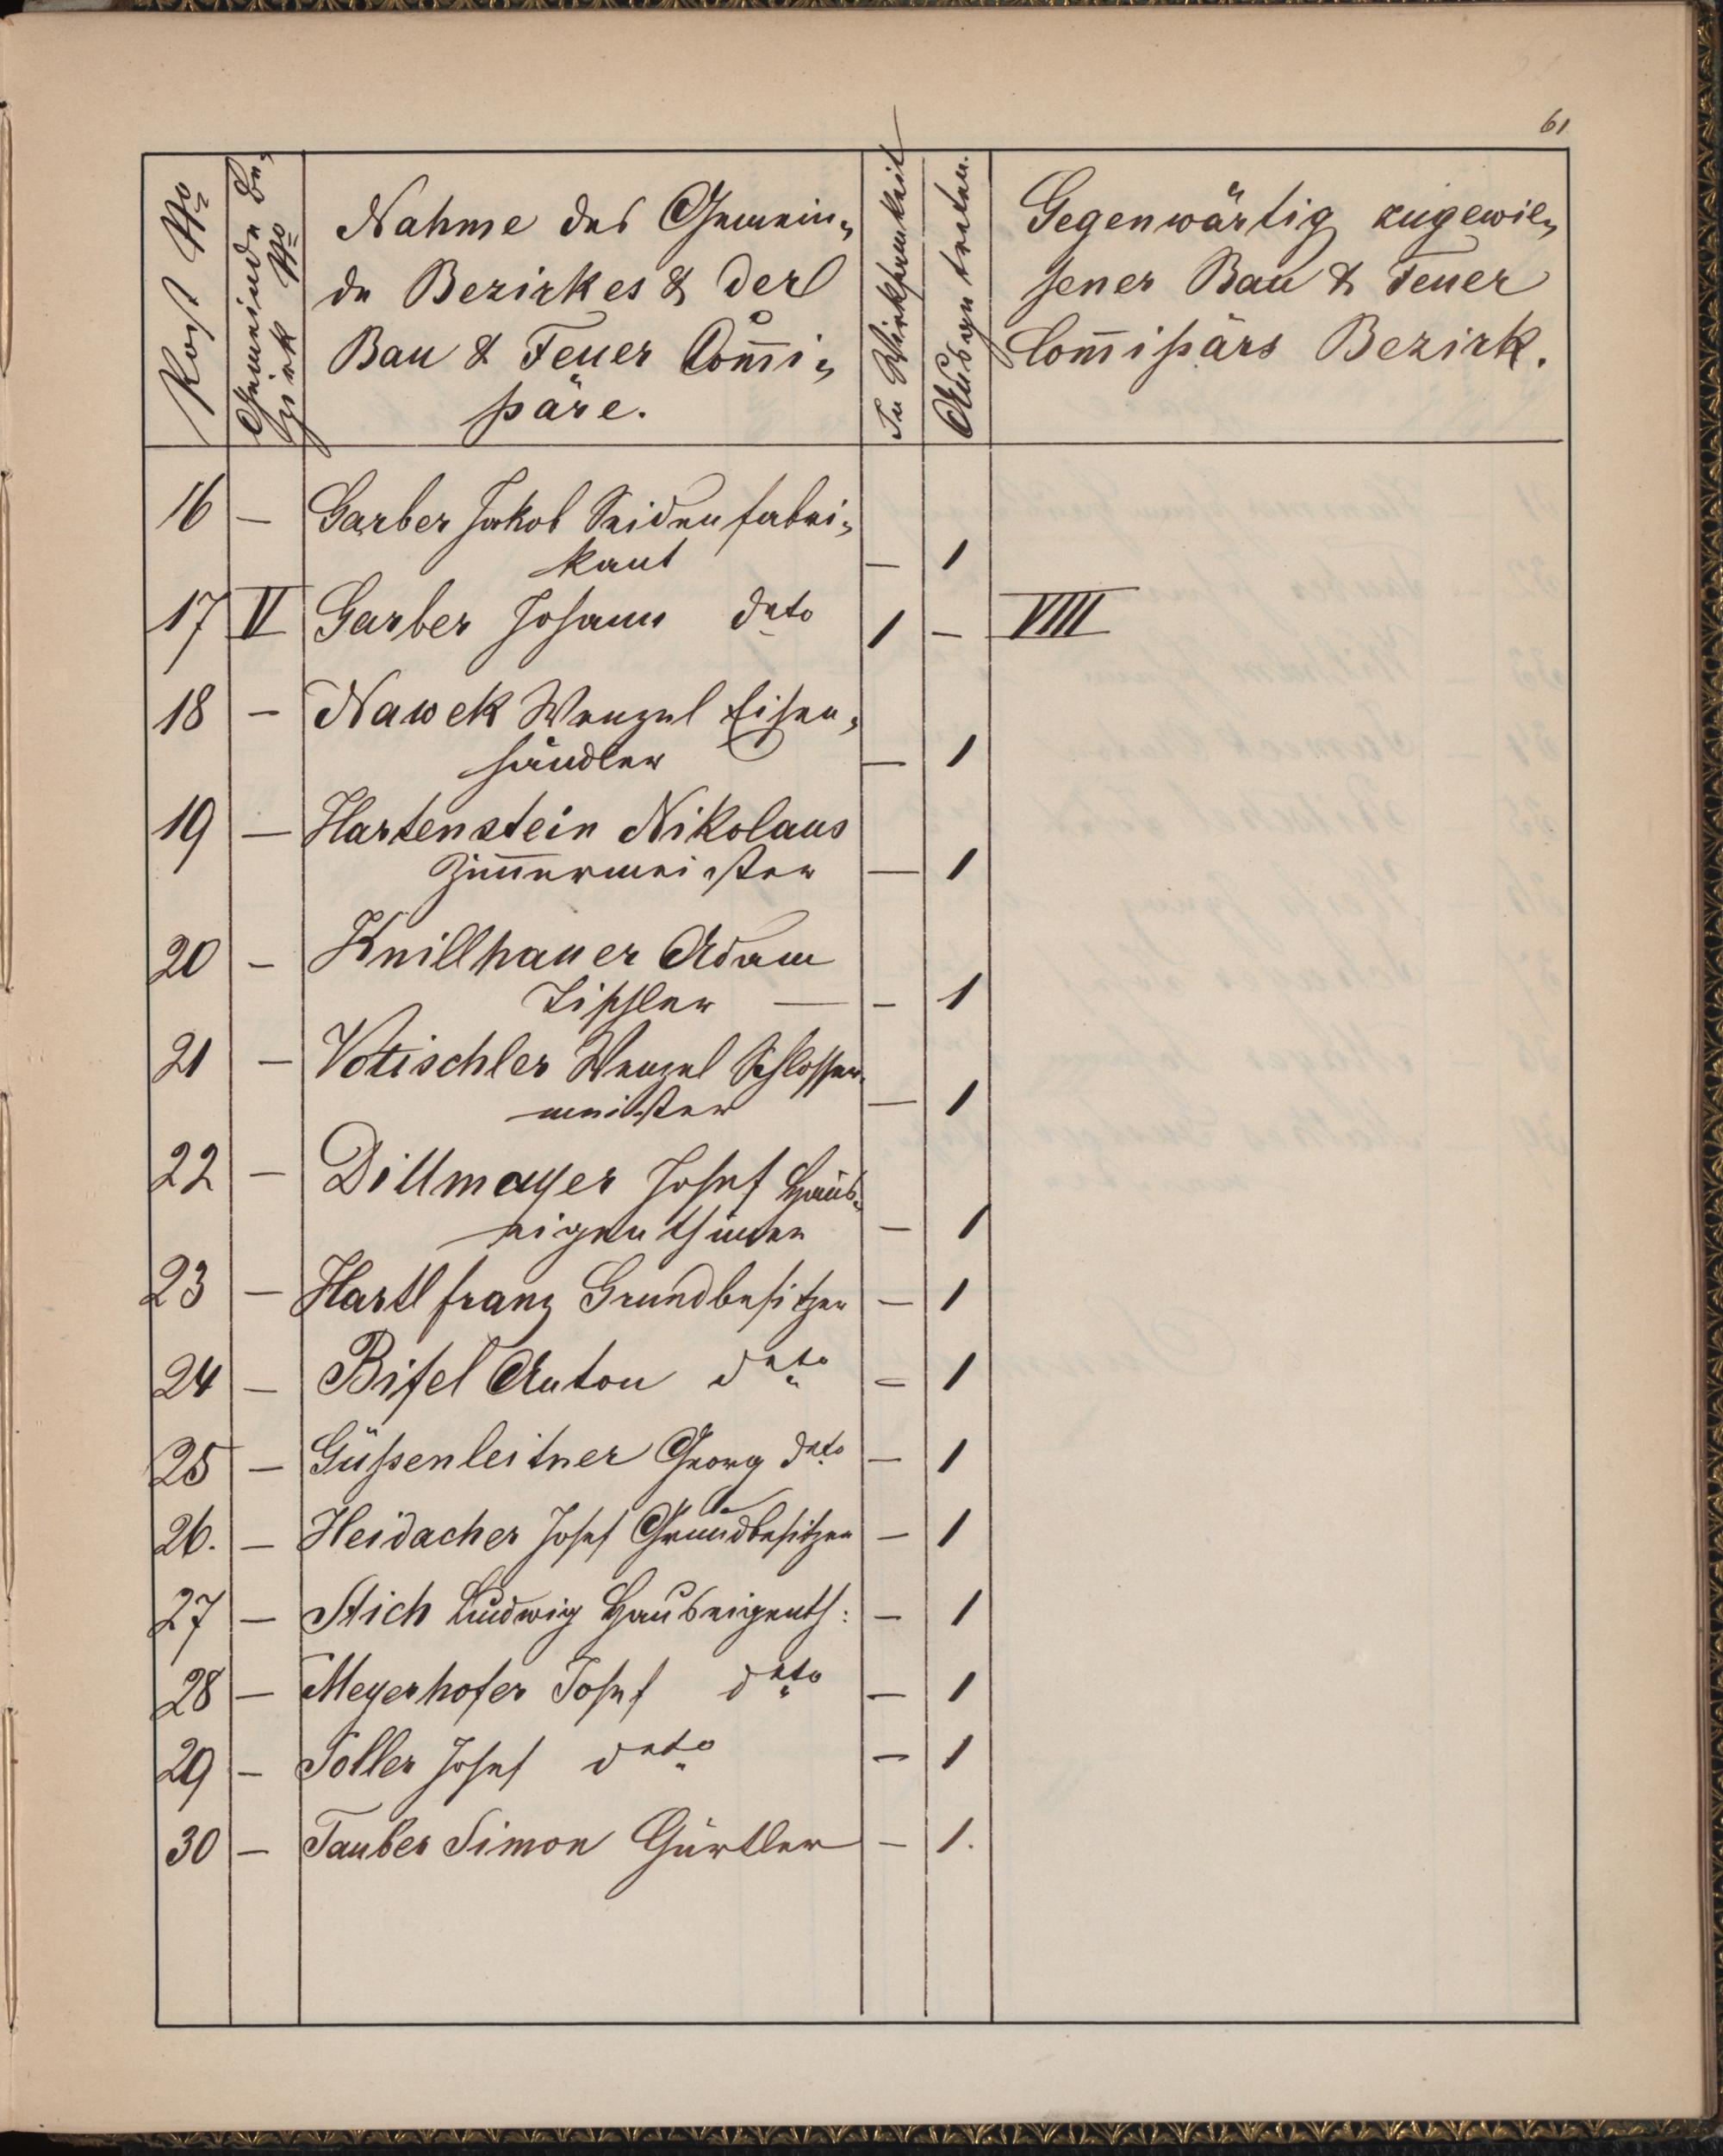 61
Post No
Gemeinde Be„
zirk No
Nahme des Gemein„
de Bezirkes & der
Bau & Feuer Com̄i„
ßäre.
In Wirksamkeit
Ausgetreten.
Gegenwärtig zugewie„
sener Bau & Feuer
Com̄ißärs Bezirk.
16 — Garber Jakob Seidenfabri„
kant — 1
17 V Garber Johann dtto 1 — VIII
18 — Nawek Wenzel Eisen„
händler — 1
19 — Hartenstein Nikolaus
Zim̄ermeister — 1
20 — Knillhauer Adam
Tischler — — 1
21 — Votischler Wenzel Schlosser„
meister — 1
22 — Dillmayer Josef Haus„
eigenthümer — 1
23 — Hartl Franz Grundbesitzer — 1
24 — Bifel Anton dtto — 1
25 — Güßenleitner Georg dtto — 1
26. — Heidacher Josef Grundbesitzer — 1
27 — Stich Ludwig Hauseigenth: — 1
28 — Meyerhofer Josef dtto — 1
29 — Soller Josef dtto — 1
30 — Tauber Simon Gürtler — 1.